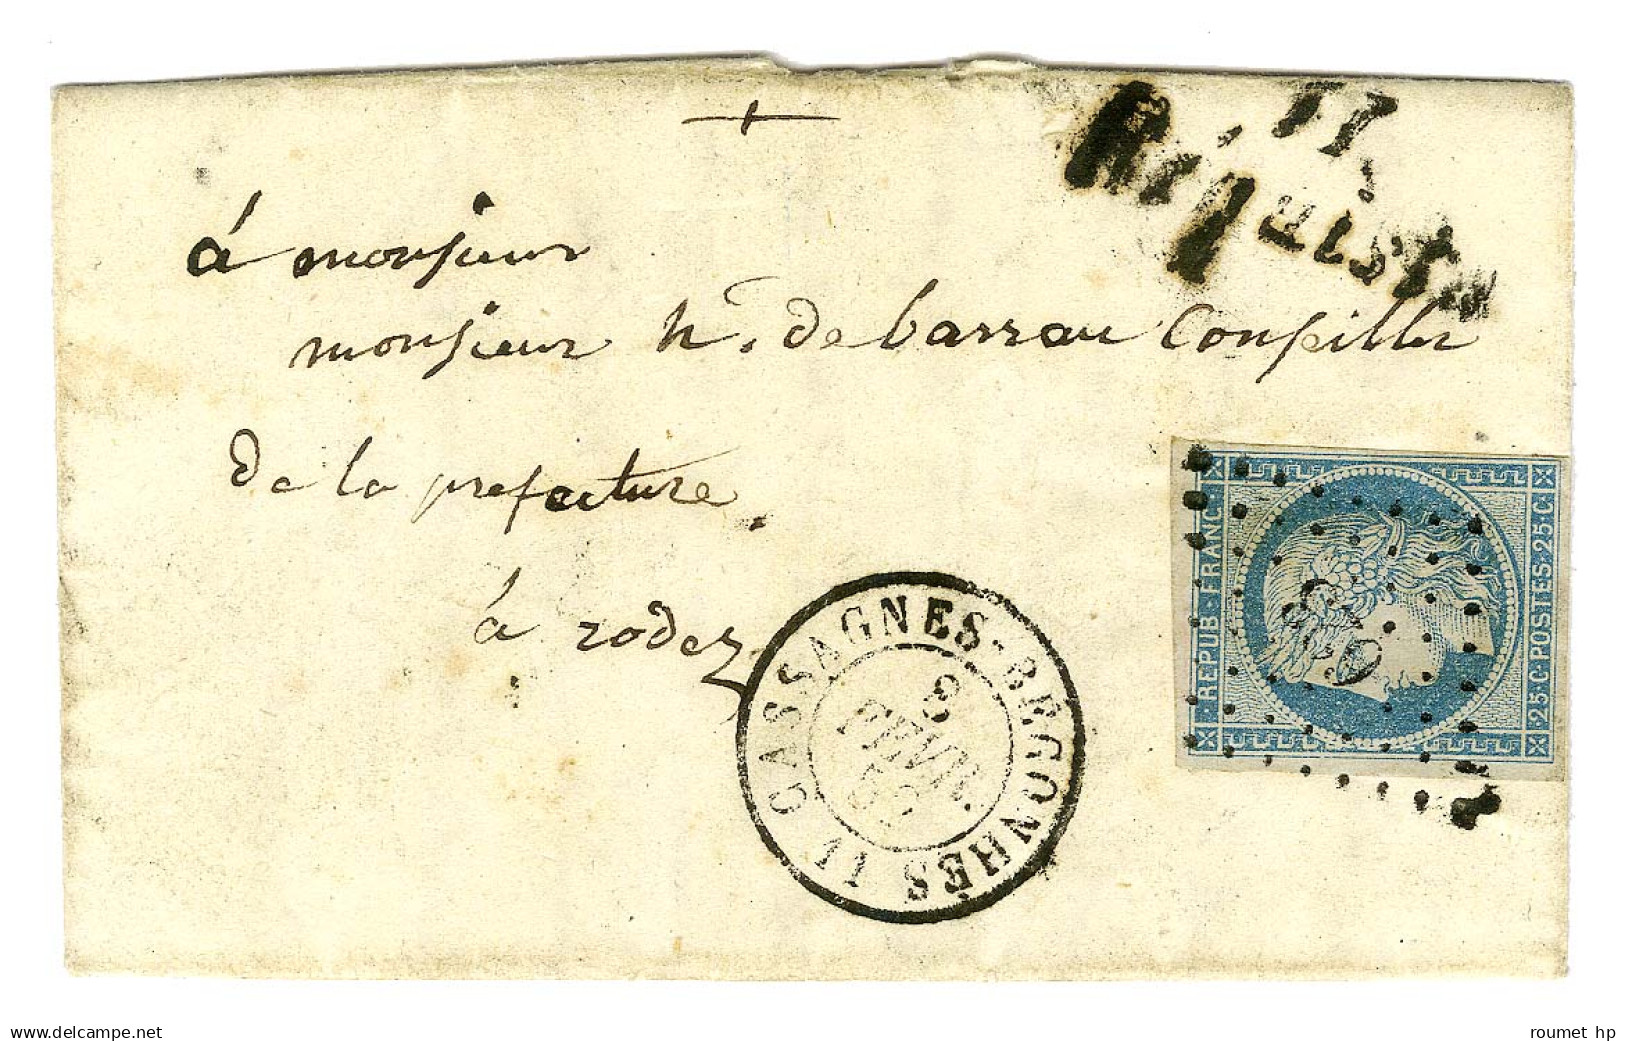 11
Réquista
à monsieur
monsieur h. de barrau Conseiller
de la prefecture
à rodez
CASSAGNES-BEGONHÈS 11
8
FEVR.
REPUB·FRANC·
25·C·POSTES·25·C·
www.delcampe.net
roumet hp